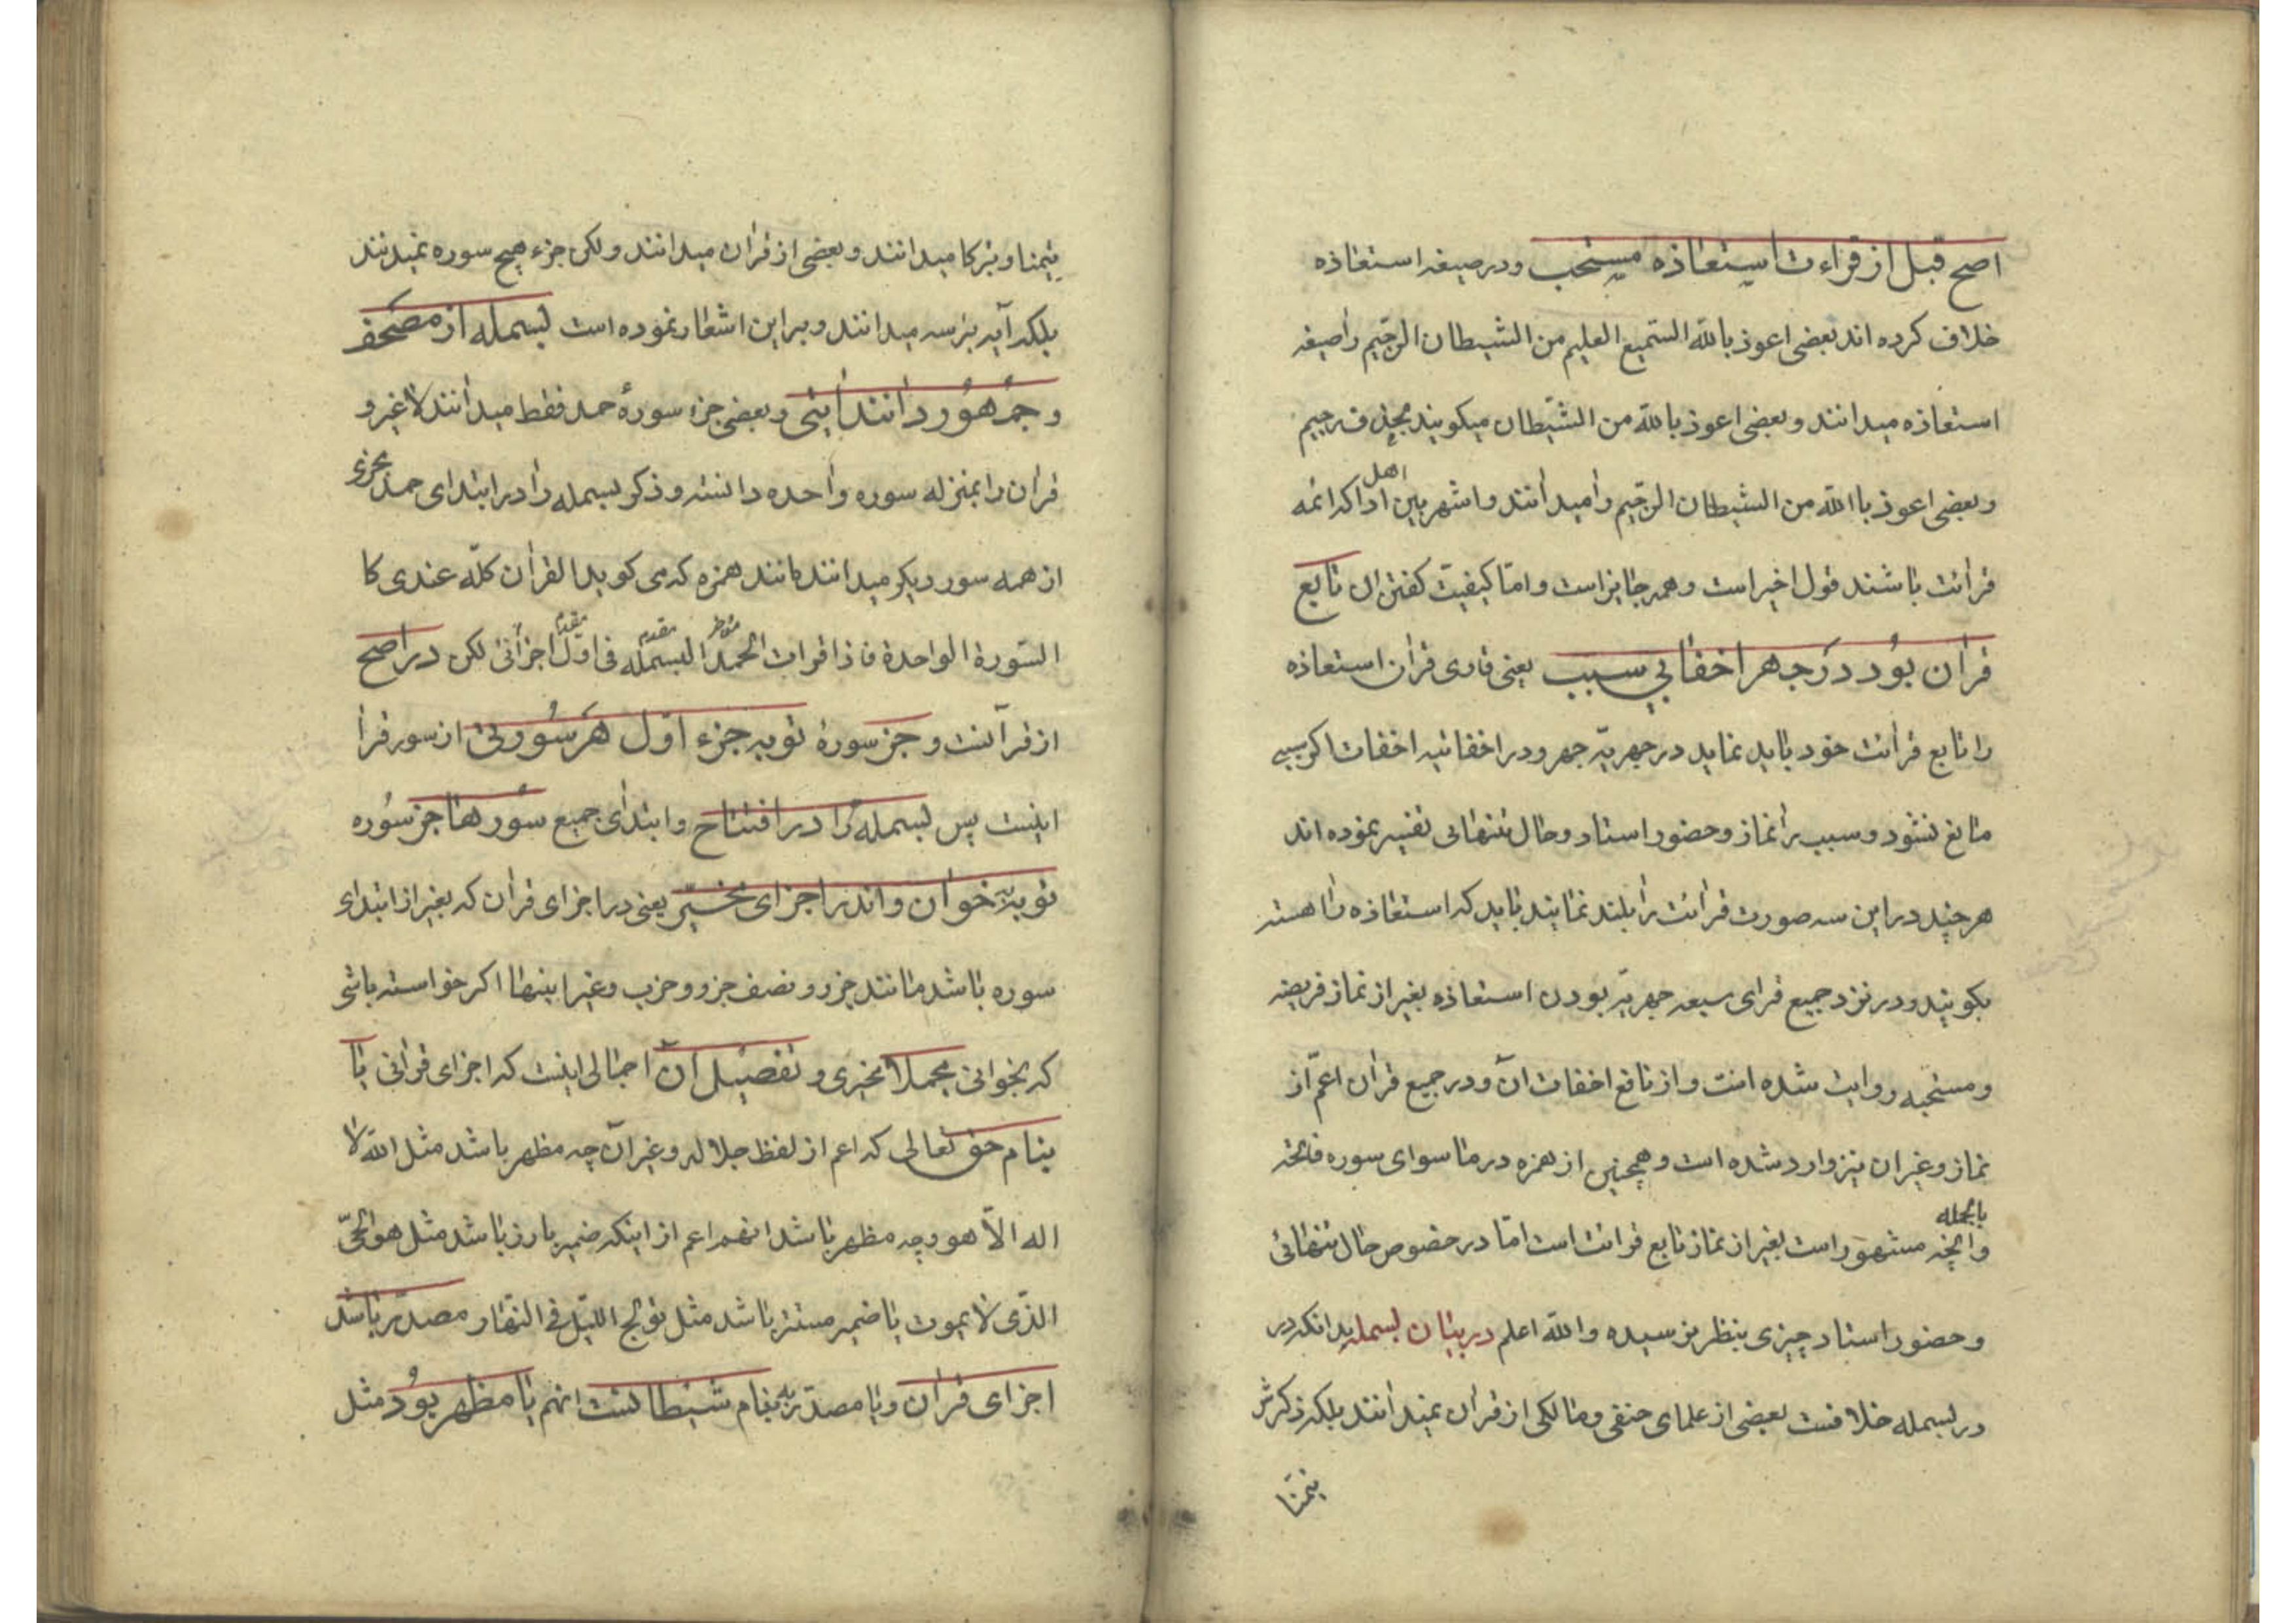 اصح قبل از قراءت استعاذه مستحب ودر صیغه استعاذه
خلاف کرده اند بعضی اعوذ بالله السّمیع العلیم من الشیطان الرّجیم را صیغه
استعاذه میدانند و بعضی اعوذ بالله من الشّیطان میکویند بحذف رجیم
و بعضی اعوذ باالله من الشیطان الرّجیم را میدانند واشهر بین اهل ادا که ائمه
قرائت باشند قول اخیر است و همه جایز است وامّا کیفیّت کفتن ان تابع
قران بود در جهر اخفا بی سبب یعنی قاری قران استعاذه
را تابع قرائت خود باید نماید در جهریّه جهر ودر اخفاتیه اخفات اکر سببی
مانع نشود و سبب را نماز و حضور استاد و حال تنهائی تفسیر نموده اند
هر چند در این سه صورت قرائت را بلند نمایند باید که استعاذه را اهسته
بکویند ودر نزد جمیع قرای سبعه جهریّه بودن استعاذه بغیر از نماز فریضه
ومستحبه روایت شده است و از نافع اخفات انّ ودر جمیع قران اعمّ از
نماز و غیر ان نیز وارد شده است و همچنین از همزه در ما سوای سوره فاتحه
بالجمله
وانچه مشهور است بغیر از نماز تابع قرائت است امّا در خصوص حال تنهائی
و حضور استاد چیزی بنظر نرسیده والله اعلم در بیان بسمله بدانکه در
در بسمله خلافست بعضی از علمای حنفی ومالکی از قران نمیدانند بلکه ذکرش
تیمّنا
تیمنا و تبرکا میدانند و بعضی از قران میدانند ولکن جزء هیچ سوره نمیدانند
بلکه آیه براسه میدانند و بر این اشعار نموده است بسمله از مصحف
و جمهور دانند ایتی و بعضی جزء سورهٔ حمد فقط میدانند لا غیر و
قران را بمنزله سوره واحده دانسته و ذکر بسمله را در ابتدای حمد مجزی
از همه سور دیکر میدانند مانند همزه که می کوید القران کلّه عندی کا
السّورة الواحدة فاذا قرات الحمد البسمله فی اوّل اجزأنی لکن در اصح
مؤخر مقدم مقدم
از قرآنست و جز سورهٔ توبه جزء اوّل هر سورتی از سور قرا
اینست پس بسمله را در افتتاح وابتدای جمیع سورها جز سوره
توبه خوان واندر اجزای مخیّر یعنی در اجزای قران که بغیر از ابتدای
سوره باشد مانند جزو و نصف جزو و حزب و غیر اینها اکر خواسته باشی
که بخوانی مجملا مخیری و تفصیل آن اجمالی اینست که اجزای قرانی یا
بنام حق تعالی که اعم از لفظ جلاله و غیر آن چه مظهر باشد مثل الله لا
اله الّا هو وچه مظهر باشد انهم اعم از اینکه ضمیر بارز باشد مثل هو الحیّ
الّذی لا یموت یا ضمیر مستتر باشد مثل تولج اللیل فی النّهار مصدّر باشد
اجزای قران ویا مصدّر به بنام شیطانست انهم یا مظهر بود مثل